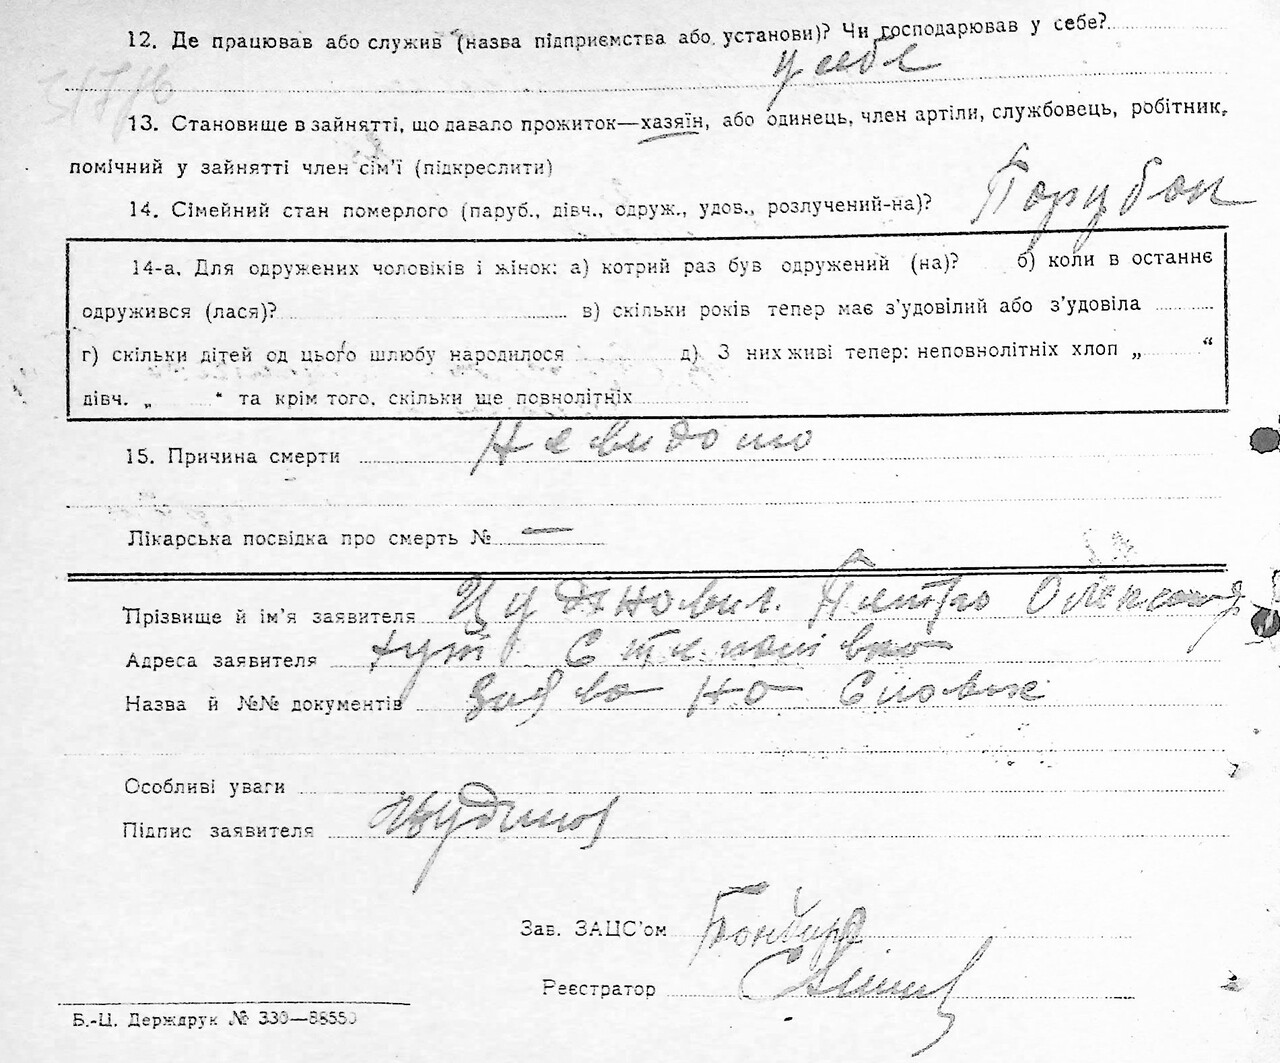 12. Де працював або служив (назва підприємства або установи)? Чи господарював у себе?
у себе
13. Становище в зайнятті, що давало прожиток—хазяїн, або одинець, член артіли, службовець, робітник,
помічний у зайнятті член сім'ї (підкреслити)
14. Сімейний стан померлого (паруб., дівч., одруж., удов., розлучений-на)? Парубок
14-а. Для одружених чоловіків і жінок: а) котрий раз був одружений (на)? б) коли в останнє
одружився (лася)? в) скільки років тепер має з'удовілий або з'удовіла
г) скільки дітей од цього шлюбу народилося д) З них живі тепер: неповнолітніх хлоп „ “
дівч. „ “ та крім того, скільки ще повнолітніх
15. Причина смерти Невидомо
Лікарська посвідка про смерть № —
Прізвище й ім'я заявителя Петро Олександ
Адреса заявителя хут Степанівка
Назва й №№ документів Заява на Словах
Особливі уваги
Підпис заявителя
Зав. ЗАЦС'ом Бондар
Реєстратор
Б.-Ц. Держдрук № 330—88550